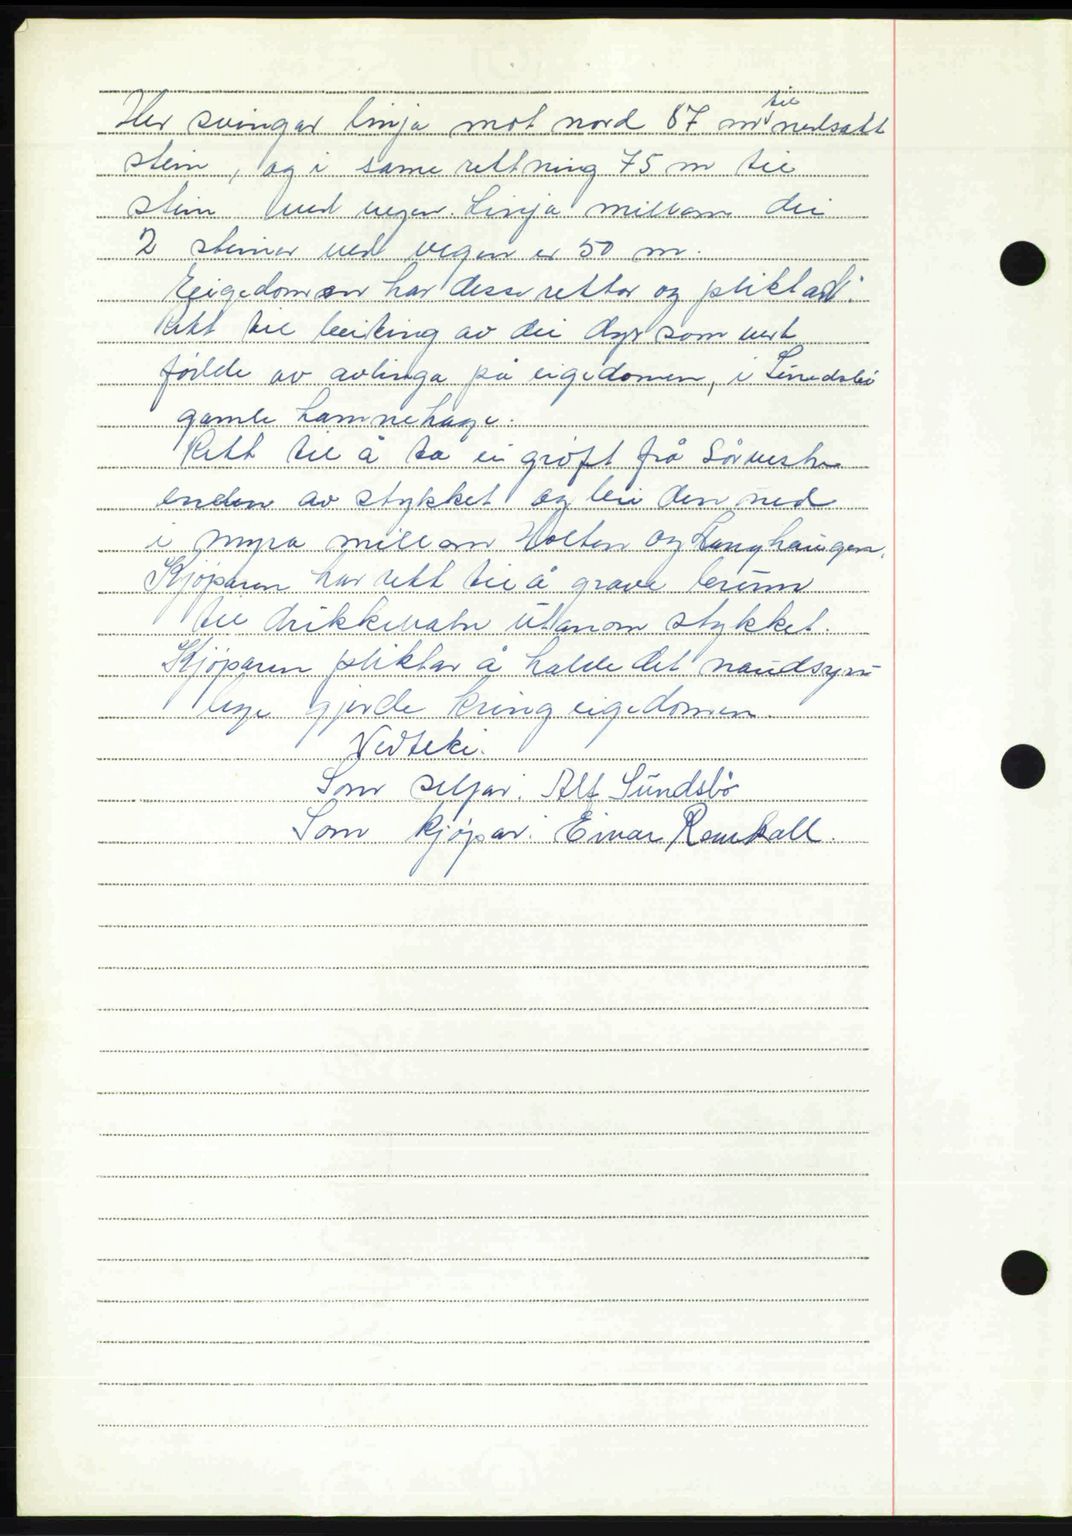 Her svingar linja mot nord 87 m til nedsatt
stein, og i same rettning 75 m til
stein ved vegen. Linja millom dei
2 steinar ved vegen er 50 m.
Eigedomen har desse rettar og pliktar:
Rett til beiting av dei dyr som vert
fødde av avlinga på eigedomen, i Sundsbø
gamle hamnehage.
Rett til å ta ei grøft frå Sørvestre
enden av stykket og lei den ned
i myra millom Holten og Langhaugen.
Kjøparen har rett til å grave brunn
til drikkevatn utanom stykket.
Kjøparen pliktar å halde det naudsyn-
lege gjerde kring eigedomen.
Vedteki.
Som seljar: Alf Sundsbø
Som kjøpar: Einar